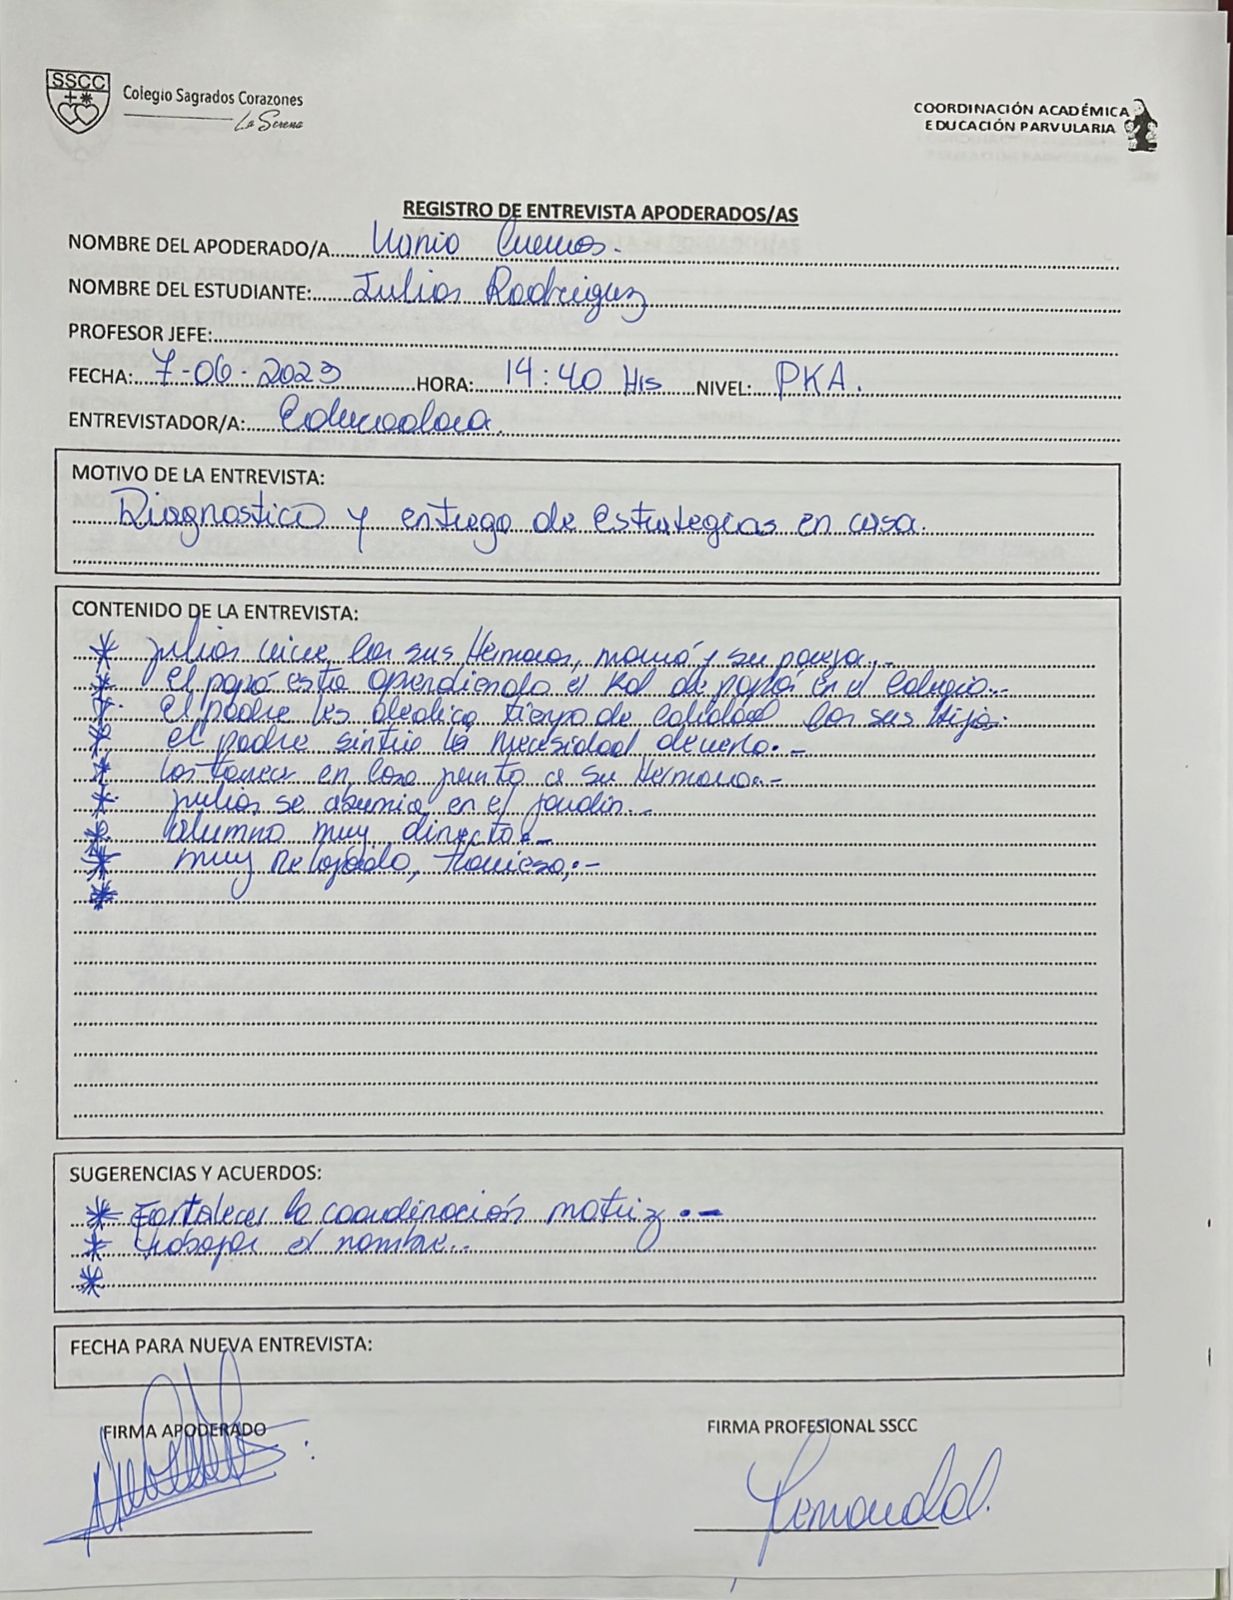 SSCC
Colegio Sagrados Corazones
La Serena
COORDINACIÓN ACADÉMICA
EDUCACIÓN PARVULARIA
REGISTRO DE ENTREVISTA APODERADOS/AS
NOMBRE DEL APODERADO/A
NOMBRE DEL ESTUDIANTE: Julios Rodriguez
PROFESOR JEFE:
FECHA: 7-06-2023 HORA: 14:40 Hrs NIVEL: PKA.
ENTREVISTADOR/A: Educadora
MOTIVO DE LA ENTREVISTA:
Diagnostico y entrego de estrategias en casa.
CONTENIDO DE LA ENTREVISTA:
* Julios vive con sus Hermanos, mamá y su pareja.-
* El papá esta aprendiendo el Rol de papá en el Colegio.-
* El padre les dedica tiempo de calidad con sus Hijos.
* el padre sintio la necesidad de verlo.-
* Las tareas en casa junto a su Hermano.-
* Julios se aburria en el jardin.-
* alumno muy directo.-
* muy relajado, travieso,.-
*
SUGERENCIAS Y ACUERDOS:
* Fortalecer la coordinación motriz.-
* trabajar el nombre.-
*
FECHA PARA NUEVA ENTREVISTA:
FIRMA APODERADO
FIRMA PROFESIONAL SSCC